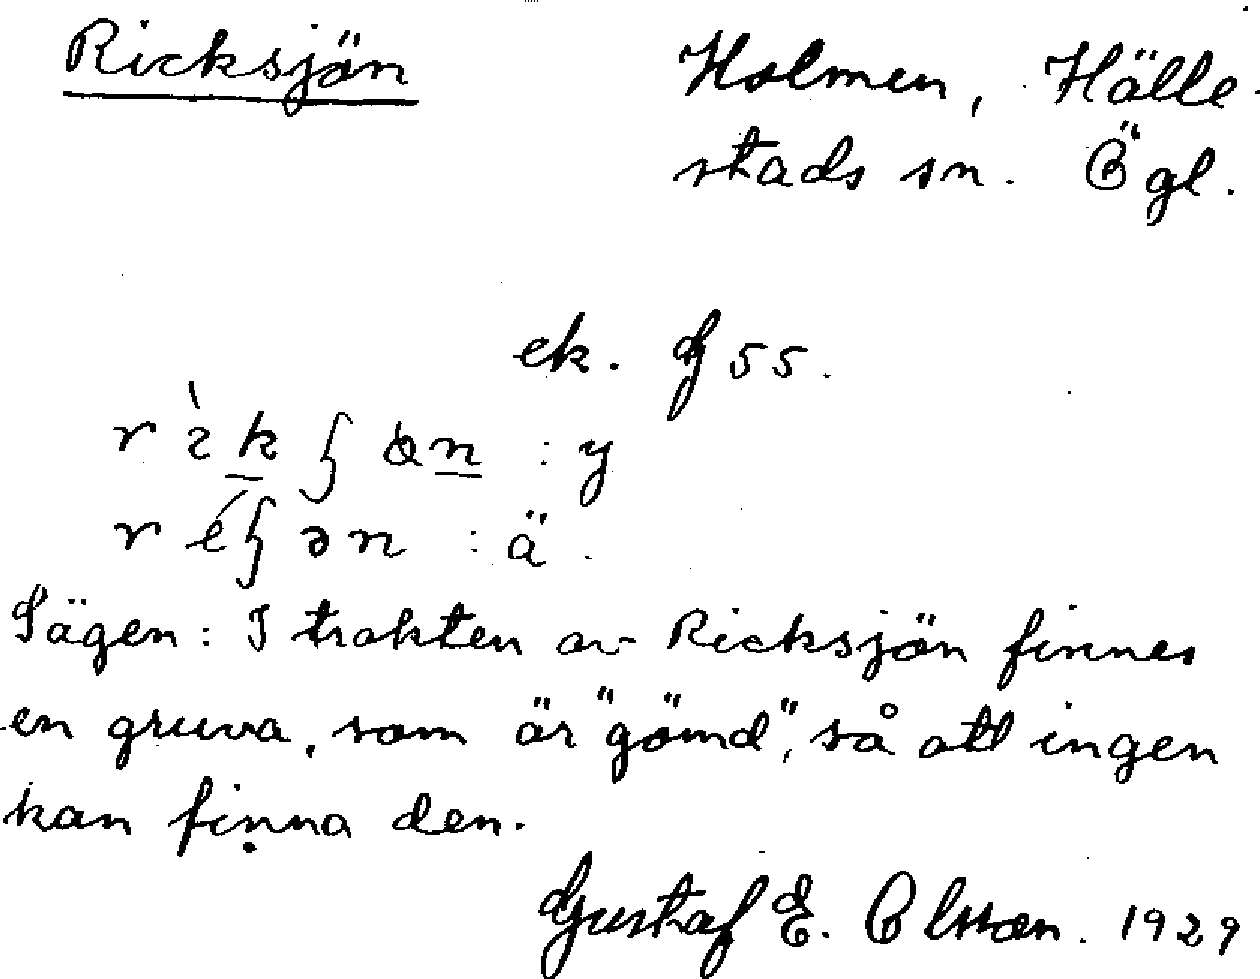 Ricksjön
Holmen, Hälle-
stads sn. Ögl.
ek. J 55.
: y
: ä.
Sägen: I trakten av Ricksjön finnes
en gruva, som är "gömd", så att ingen
kan finna den.
Gustaf E. Olsson. 1929